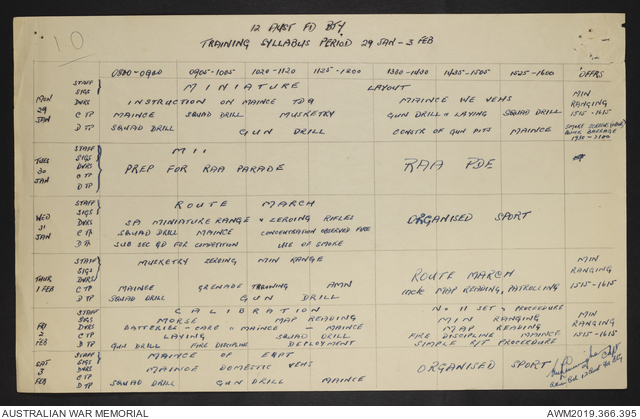 10
12 AUST FD BTY
TRAINING SYLLABUS PERIOD 29 JAN - 3 FEB
0800-0900 0905-1005 1020-1120 1125-1200 1330-1430 1435-1505 1525-1600 OFFRS
MON 29 JAN
STAFF SIGS MINIATURE LAYOUT
DVRS INSTRUCTION ON MAINCE TDG MAINCE WE VEHS
C TP MAINCE SQUAD DRILL MUSKETRY GUN DRILL & LAYING SQUAD DRILL
D TP SQUAD DRILL GUN DRILL CONSTR OF GUN PITS MAINCE
MIN RANGING 1515-1615
SMOKE SCREEN
1930-2100
TUES 30 JAN
STAFF SIGS DVRS C TP D TP
PREP FOR RAA PARADE RAA PDE
WED 31 JAN
STAFF SIGS ROUTE MARCH
DVRS SA MINIATURE RANGE & ZEROING RIFLES ORGANISED SPORT
C TP SQUAD DRILL MAINCE CONCENTRATION OBSERVED FIRE
D TP SUB SEC GD FOR COMPETITION USE OF SMOKE
THUR 1 FEB
STAFF SIGS DVRS MUSKETRY ZEROING MIN RANGE ROUTE MARCH
C TP MAINCE GRENADE THROWING AMN MAP READING, PATROLLING
D TP SQUAD DRILL GUN DRILL
MIN RANGING 1515-1615
FRI 2 FEB
STAFF CALIBRATION No 11 SET & PROCEDURE
SIGS MORSE MAP READING MIN RANGING
DVRS BATTERIES - CARE & MAINCE - MAINCE MAP READING
C TP LAYING SQUAD DRILL FIRE DISCIPLINE MAINCE
D TP GUN DRILL FIRE DISCIPLINE DEPLOYMENT SIMPLE R/T PROCEDURE
MIN RANGING 1515-1615
SAT 3 FEB
STAFF SIGS MAINCE OF EQPT
DVRS MAINCE DOMESTIC VEHS ORGANISED SPORT
C TP
D TP SQUAD DRILL GUN DRILL MAINCE
Capt
AUSTRALIAN WAR MEMORIAL AWM2019.366.395